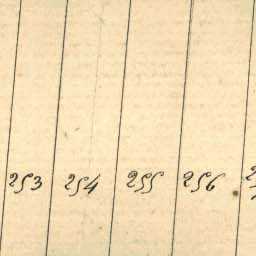 253 254 255 256